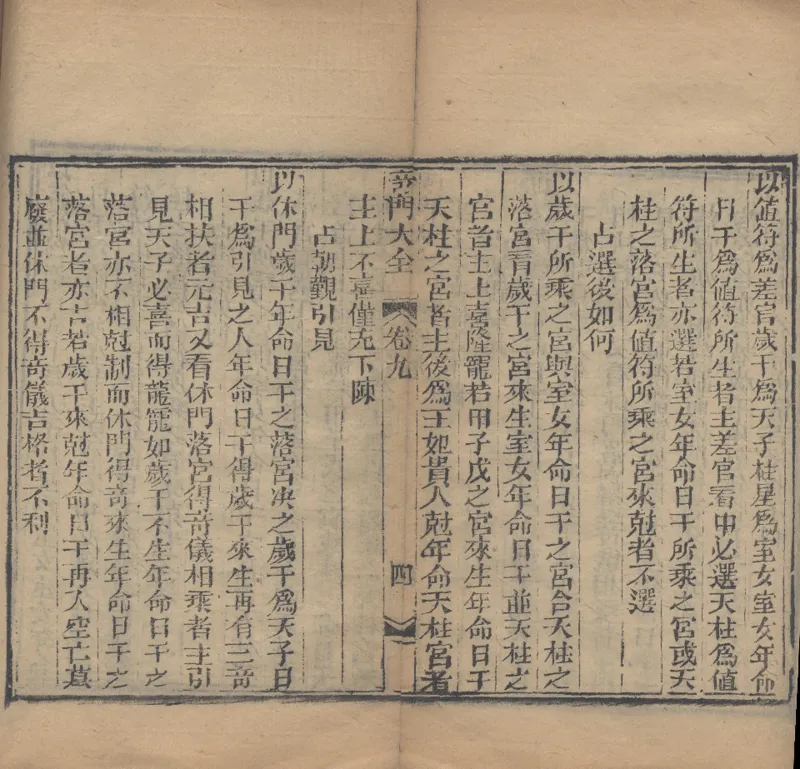 以値符爲差官歲干爲天子柱星爲室女室女年命
日干爲値符所生者主差官看中必選天柱爲値
符所生者亦選若室女年命日干所乘之宮或天
柱之落宮爲値符所乘之宮來尅者不選
占選後如何
以歲干所乘之宮與室女年命日干之宮合天柱之
落宮看歲干之宮來生室女年命日干並天柱之
宮者主上喜隆寵若甲子戊之宮來生年命日干
天柱之宮者主後爲王妃貴人尅年命天柱宮者
奇門大全 卷九 四
主上不喜僅充下陳
占朝覲引見
以休門歲干年命日干之落宮决之歲干爲天子日
干爲引見之人年命日干得歲干來生再有三奇
相扶者元吉又看休門落宮得奇儀相乘者主引
見天子必喜而得龍寵如歲干不生年命日干之
落宮亦不相尅制而休門得奇來生年命日干之
落宮者亦吉若歲干來尅年命日干再入空亡墓
廢並休門不得奇儀吉格者不利